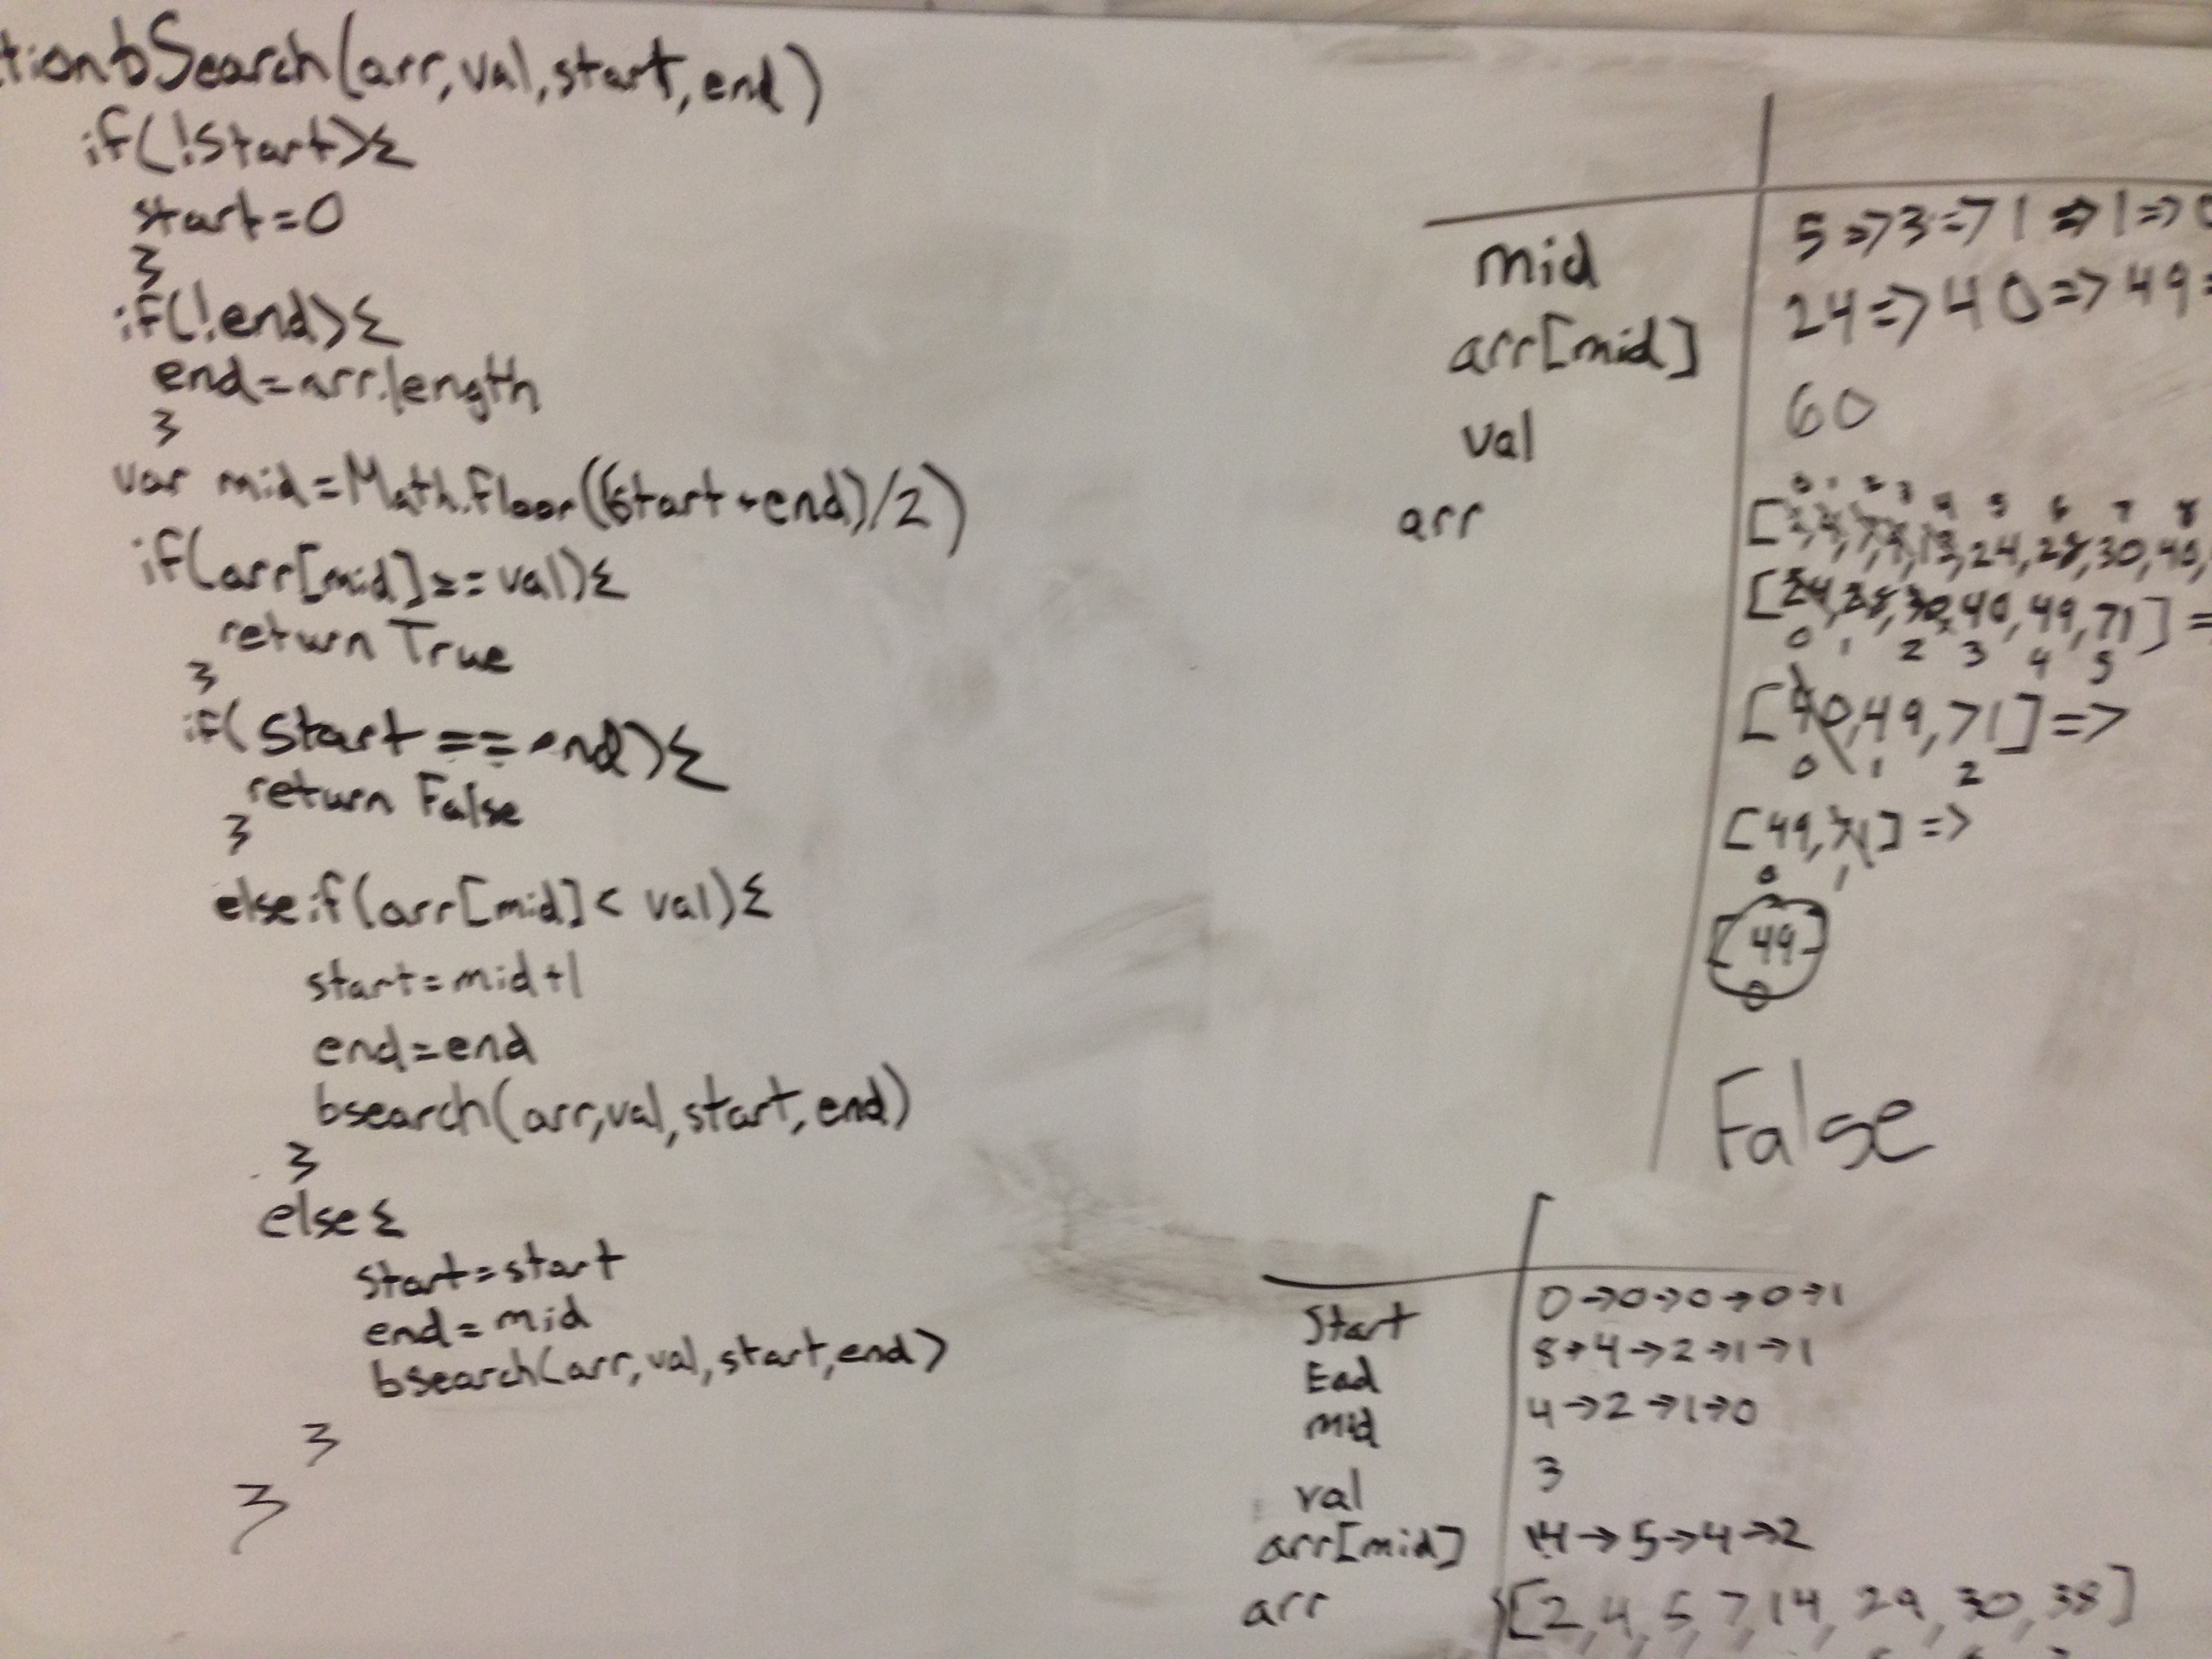 tion bSearch(arr,val,start,end)
if(!start){
start=0
}
if(!end){
end=arr.length
}
var mid=Math.floor((start+end)/2)
if(arr[mid]===val){
return True
}
if(start==end){
return False
}
else if(arr[mid]< val){
start=mid+1
end=end
bsearch(arr,val,start,end)
}
else{
start=start
end=mid
bsearch(arr,val,start,end)
}
}
mid 5=>3=>1=>1=>
arr[mid] 24=>40=>49=
val 60
0 1 2 3 4 5 6 7 8
arr [ 13,24,28,30,40,
[24,28,30,40,49,71]=
0 1 2 3 4 5
[40,49,71]=>
0 1 2
[49,71]=>
0 1
[49]
0
False
Start 0→0→0→0→1
End 8→4→2→1→1
mid 4→2→1→0
val 3
arr[mid] 14→5→4→2
arr [2,4,5,7,14,29,30,38]